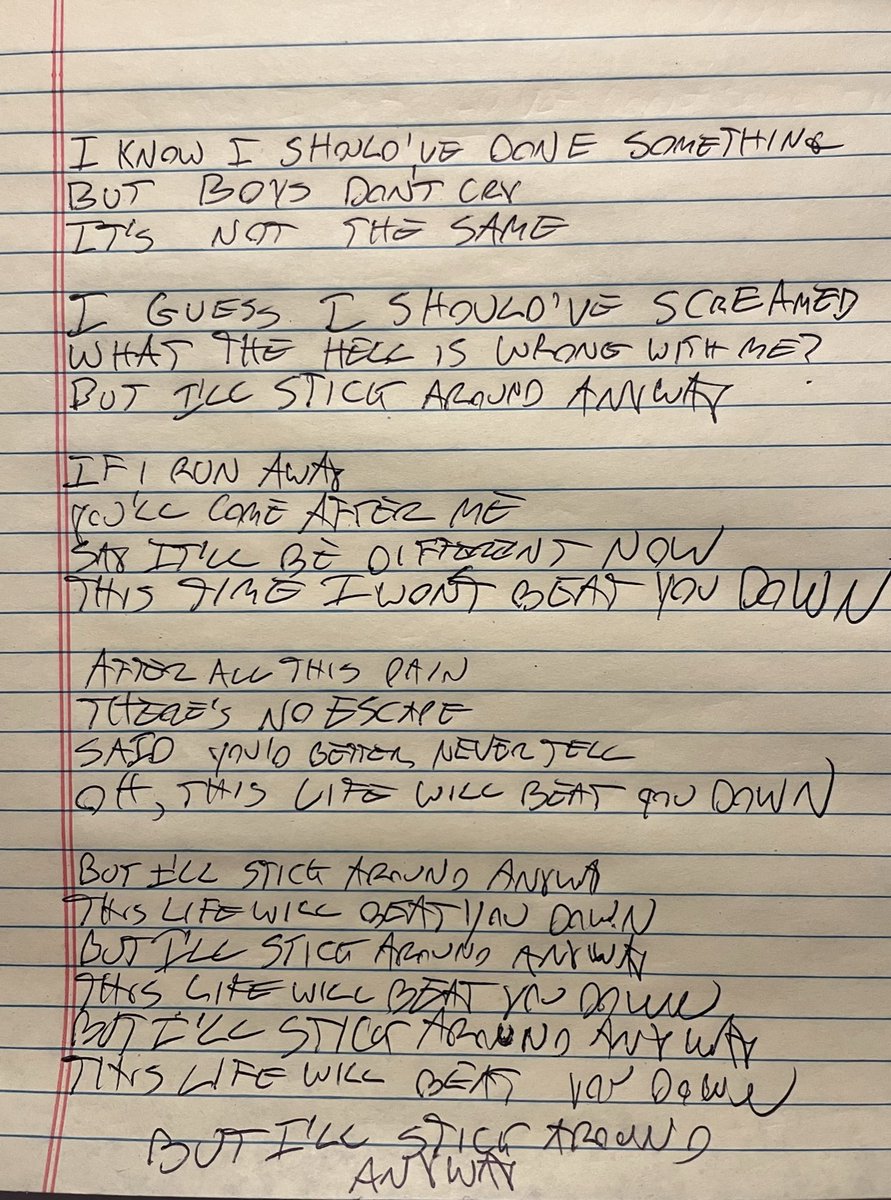 I KNOW I SHOULD'VE DONE SOMETHING
BUT BOYS DON'T CRY
IT'S NOT THE SAME
I GUESS I SHOULD'VE SCREAMED
WHAT THE HELL IS WRONG WITH ME?
BUT I'LL STICK AROUND ANYWAY
IF I RUN AWAY
YOU'LL COME AFTER ME
SAY IT'LL BE DIFFERENT NOW
THIS TIME I WON'T BEAT YOU DOWN
AFTER ALL THIS PAIN
THERE'S NO ESCAPE
SAID YOU'D BETTER NEVER TELL
OH, THIS LIFE WILL BEAT YOU DOWN
BUT I'LL STICK AROUND ANYWAY
THIS LIFE WILL BEAT YOU DOWN
BUT I'LL STICK AROUND ANYWAY
THIS LIFE WILL BEAT YOU DOWN
BUT I'LL STICK AROUND ANYWAY
THIS LIFE WILL BEAT YOU DOWN
BUT I'LL STICK AROUND
ANYWAY